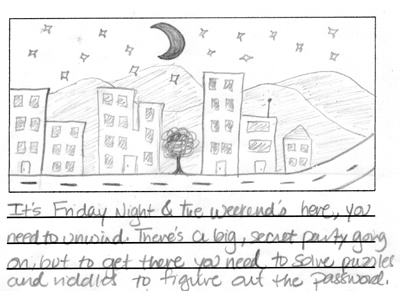 It's Friday Night & the weekend's here, you
need to unwind. There's a big, secret party going
on, but to get there you need to solve puzzles
and riddles to figure out the password.